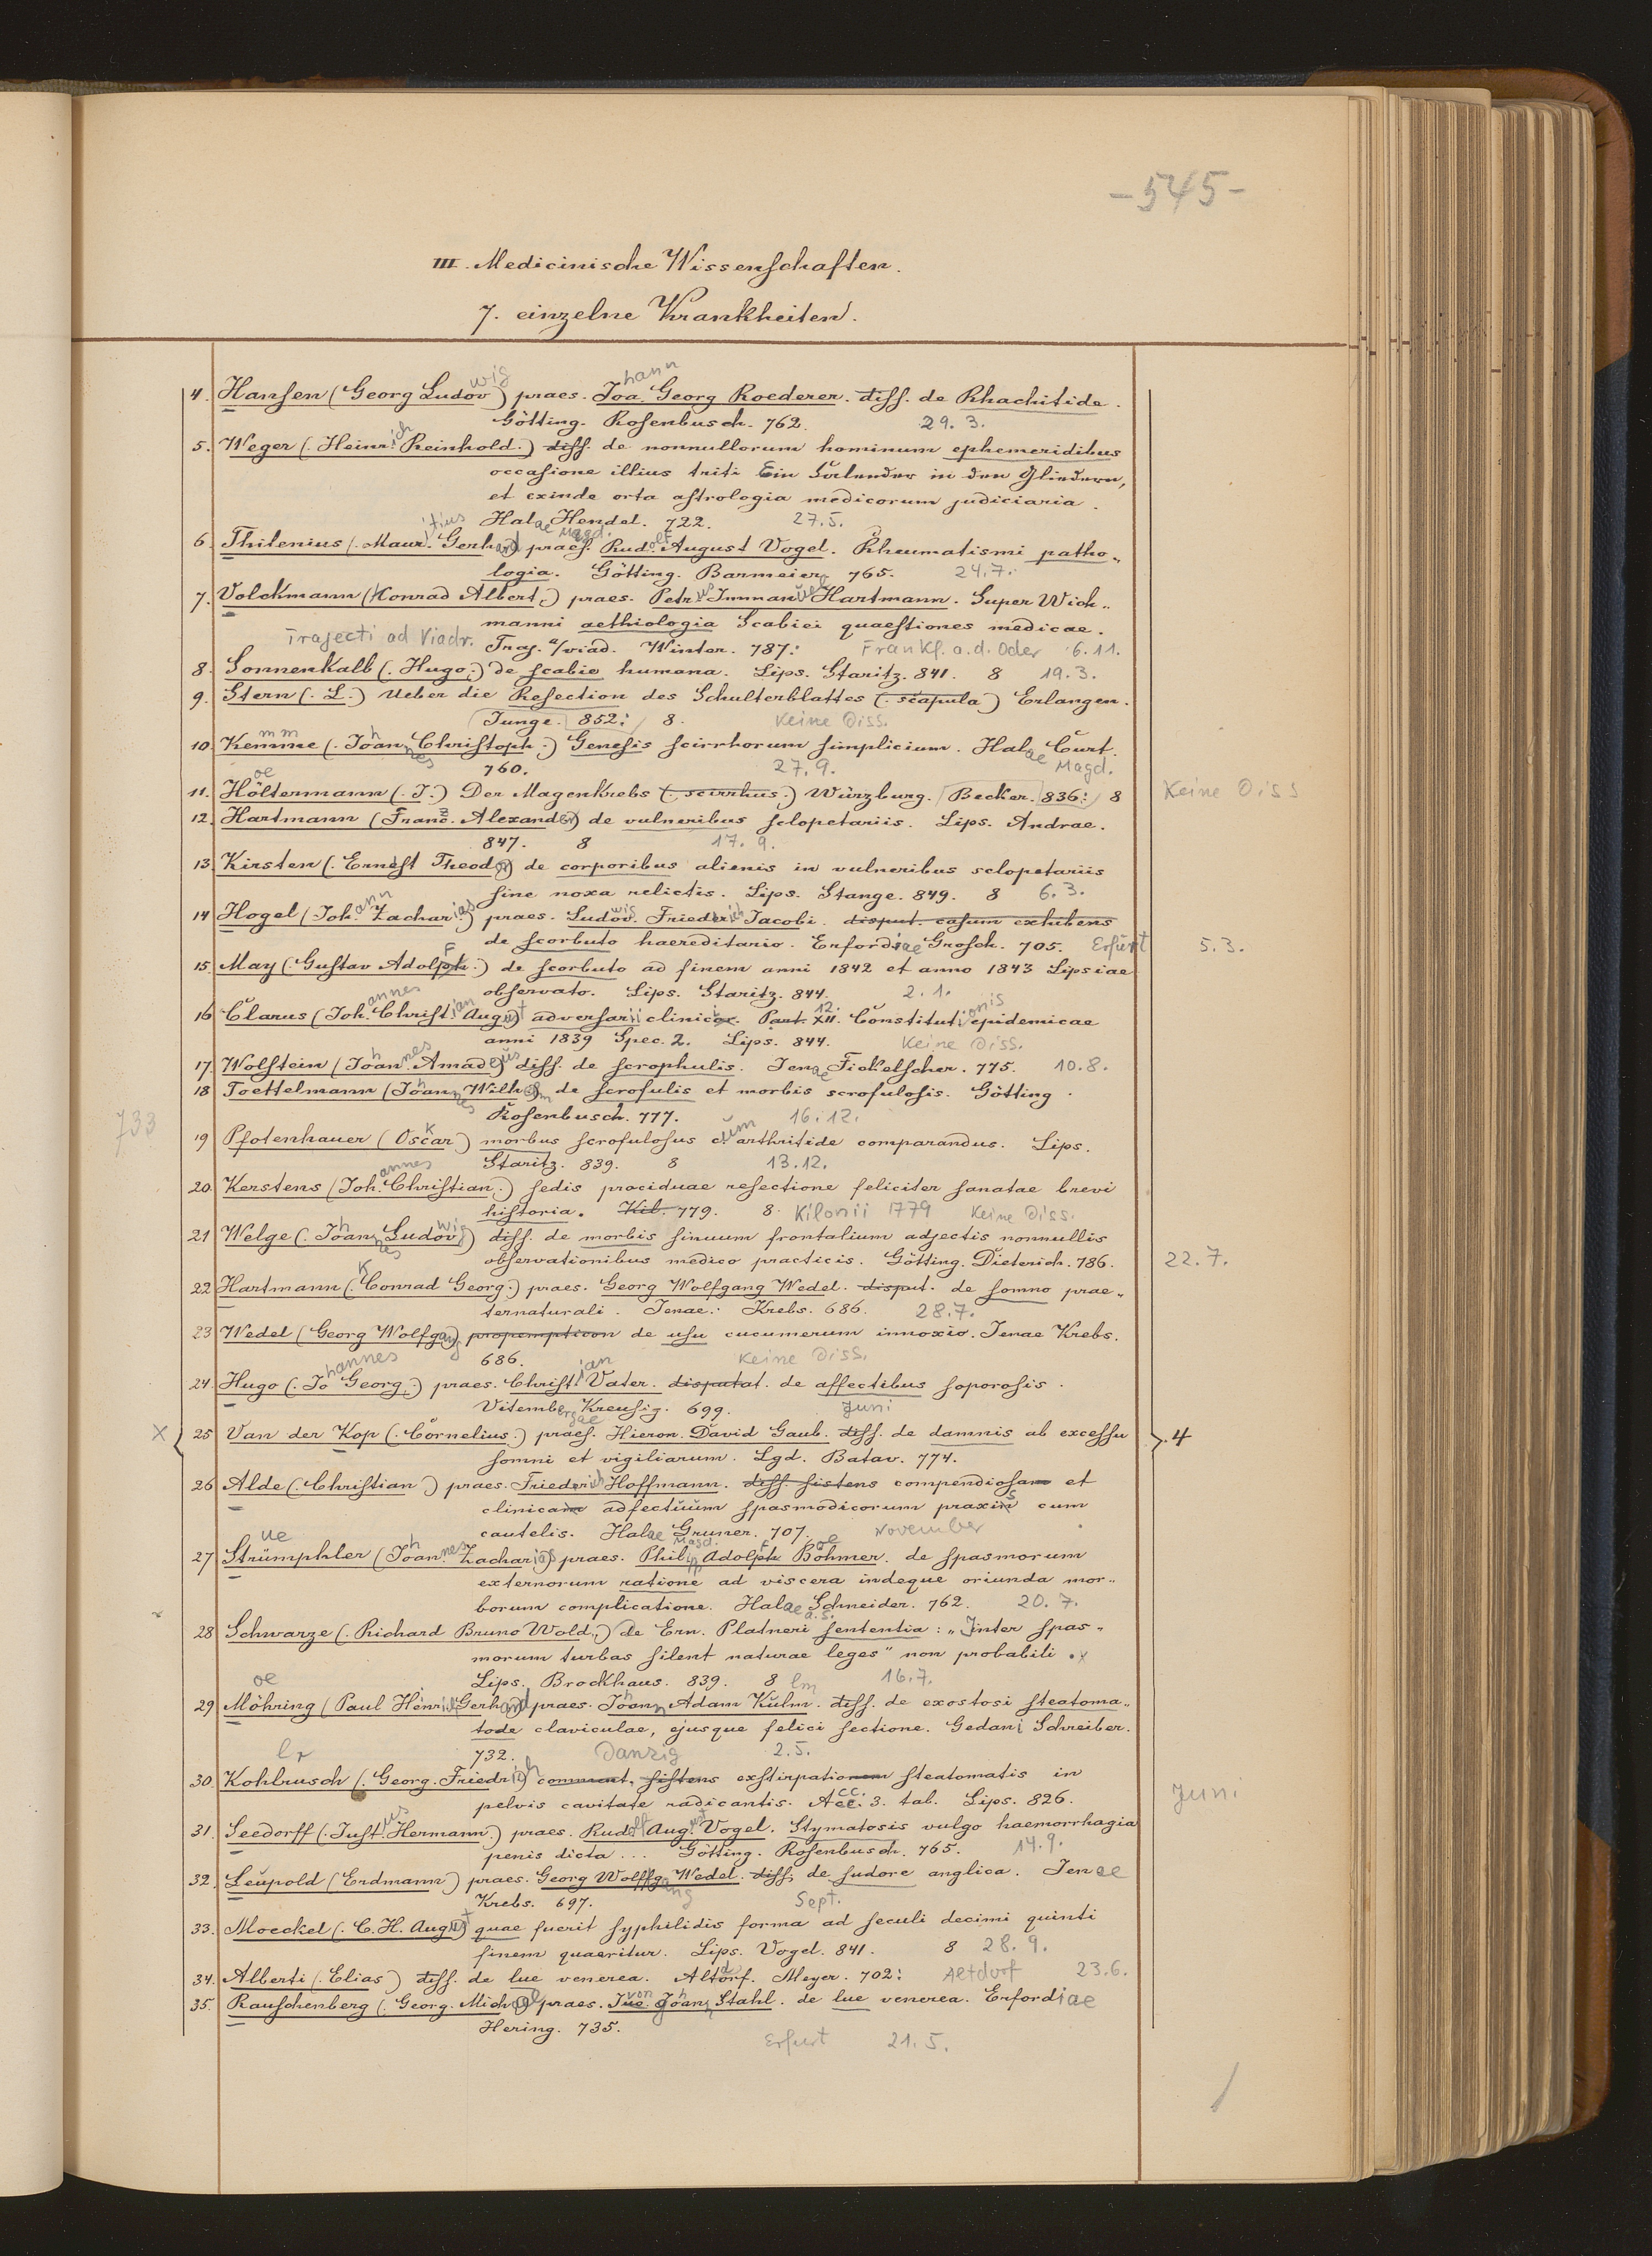 -545-
III. Medicinische Wissenschaften.
7. einzelne Krankheiten.
4. Hansen (Georg Ludowig) praes. Johann Georg Roederer. diss. de Rhachitide.
Götting. Rosenbusch. 762. 29. 3.
5. Weger (Heinrich Reinhold.) diss. de nonnullorum hominum ephemeridibus
occasione illius triti Ein Calender in den Gliedern,
et exinde orta astrologia medicorum judiciaria.
Halae Magd. Hendel. 722. 27. 5.
6. Thilenius (Mauritius Gerhard) praes. Rudolf August Vogel. Rheumatismi patho„
logia. Götting. Barmeier 765. 24. 7.
7. Volckmann (Konrad Albert.) praes. Petrus Immanuel Hartmann. Super Wich„
manni aethiologia Scabiei quaestiones medicae.
Trajecti ad Viadr. Traj. a/viad. Winter. 787. Frankf. a. d. Oder 6. 11.
8. Sonnenkalb (Hugo.) de scabie humana. Lips. Staritz. 841. 8 19. 3.
9. Stern (L.) Ueber die Resection des Schulterblattes (scapula) Erlangen.
Junge. 852. 8. Keine Diss.
10. Kemme (Johannes Christoph.) Genesis scirrhorum simplicium. Halae Magd. Curt.
760. 27. 9.
11. Höltermann (J.) Der Magenkrebs (scirrhus.) Würzburg. Becker. 836. 8 Keine Diss
12. Hartmann (Franz. Alexander) de vulneribus sclopetariis. Lips. Andrae.
847. 8 17. 9.
13. Kirsten (Ernest Theodor) de corporibus alienis in vulneribus sclopetariis
sine noxa relictis. Lips. Stange. 849. 8 6. 3.
14 Hogel (Johann Zacharias) praes. Ludowig Friederich Jacobi. disput. casum exhibens
de scorbuto haereditario. Erfordiae Grosch. 705. Erfurt 5. 3.
15. May (Gustav Adolf.) de scorbuto ad finem anni 1842 et anno 1843 Lipsiae
observato. Lips. Staritz. 844. 2. 1.
16 Clarus (Johannes Christian August) adversarii clinici. Part. XII. 12. Constitutionis epidemicae
anni 1839 Spec. 2. Lips. 844. Keine Diss.
17. Wolstein (Johannes Amadeus) diss. de scrophulis. Jenae Fickelscher. 775. 10. 8.
18 Toettelmann (Johannes Wilhelm) de scrofulis et morbis scrofulosis. Götting.
733 Rosenbusch. 777. 16. 12.
19 Pfotenhauer (Oskar) morbus scrofulosus cum arthritide comparandus. Lips.
Staritz. 839. 8 13. 12.
20. Kerstens (Johannes Christian.) sedis prociduae resectione feliciter sanatae brevi
historia. Kil. 779. 8. Kilonii 1779 Keine Diss.
21 Welge (Johannes Ludowig) diss. de morbis sinuum frontalium adjectis nonnullis
observationibus medico practicis. Götting. Dieterich. 786. 22. 7.
22 Hartmann (Konrad Georg.) praes. Georg Wolfgang Wedel. disput. de somno prae„
ternaturali. Jenae. Krebs. 686. 28. 7.
23 Wedel (Georg Wolfgang) propempticon de usu cucumerum innoxio. Jenae Krebs.
686. Keine Diss.
24. Hugo (Johannes Georg.) praes. Christian Vater. disputat. de affectibus soporosis.
Vitembergae Kreusig. 699. Juni
x 25 Van der Kop (Cornelius.) praes. Hieron. David Gaub. diss. de damnis ab excessu 4
somni et vigiliarum. Lgd. Batav. 774.
26 Alde (Christian) praes. Friederich Hoffmann. diss. sistens compendiosam et
clinicam adfectuum spasmodicorum praxis cum
cautelis. Halae Magd. Gruner. 707. November
27 Strümphler (Johannes Zacharias) praes. Philipp Adolf Böhmer. de spasmorum
externorum ratione ad viscera indeque oriunda mor„
borum complicatione. Halae a. S. Schneider. 762. 20. 7.
28 Schwarze (Richard Bruno Wold.) de Ern. Platneri sententia: „Inter spas„
morum turbas silent naturae leges" non probabili. x
Lips. Brockhaus. 839. 8 16. 7.
29 Möhring (Paul Henrich Gerhard) praes. Johann Adam Kulm. diss. de exostosi steatoma„
tode claviculae, ejusque felici sectione. Gedani Schreiber.
732. Danzig 2. 5.
30. Kohlrusch (Georg. Friedrich) comment. sistens exstirpationem steatomatis in
pelvis cavitate radicantis. Acc. 3. tab. Lips. 826. Juni
31. Seedorff (Justus Hermann.) praes. Rudolf August Vogel. Stymatosis vulgo haemorrhagia
penis dicta ... Götting. Rosenbusch. 765. 14. 9.
32. Leupold (Erdmann) praes. Georg Wolfgang Wedel. diss. de sudore anglica. Jenae
Krebs. 697. Sept.
33. Moeckel (C. H. August) quae fuerit syphilidis forma ad seculi decimi quinti
finem quaeritur. Lips. Vogel. 841. 8 28. 9.
34. Alberti (Elias) diss. de lue venerea. Altdorf. Meyer. 702. Altdorf 23. 6.
35. Rauschenberg (Georg. Michael) praes. von Johann Stahl. de lue venerea. Erfordiae
Hering. 735.
Erfurt 21. 5.